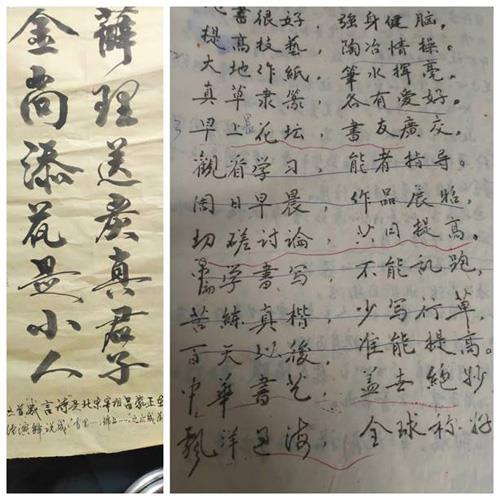 薜理送炭真君子
金尚添花是小人
書很好 強身健脑，
提高技藝 陶冶情操。
大地作紙 筆水揮毫。
真草隶篆 各有爱好。
早上花坛，書友廣交，
觀看学习，能者指导。
周日早晨，作品展
切磋讨論，共同提高。
學書写 不能乱跑，
苦練真楷 少写行草，
百天以後，准能提高。
中華書艺 盖世絶妙
飄洋过海 全球称好